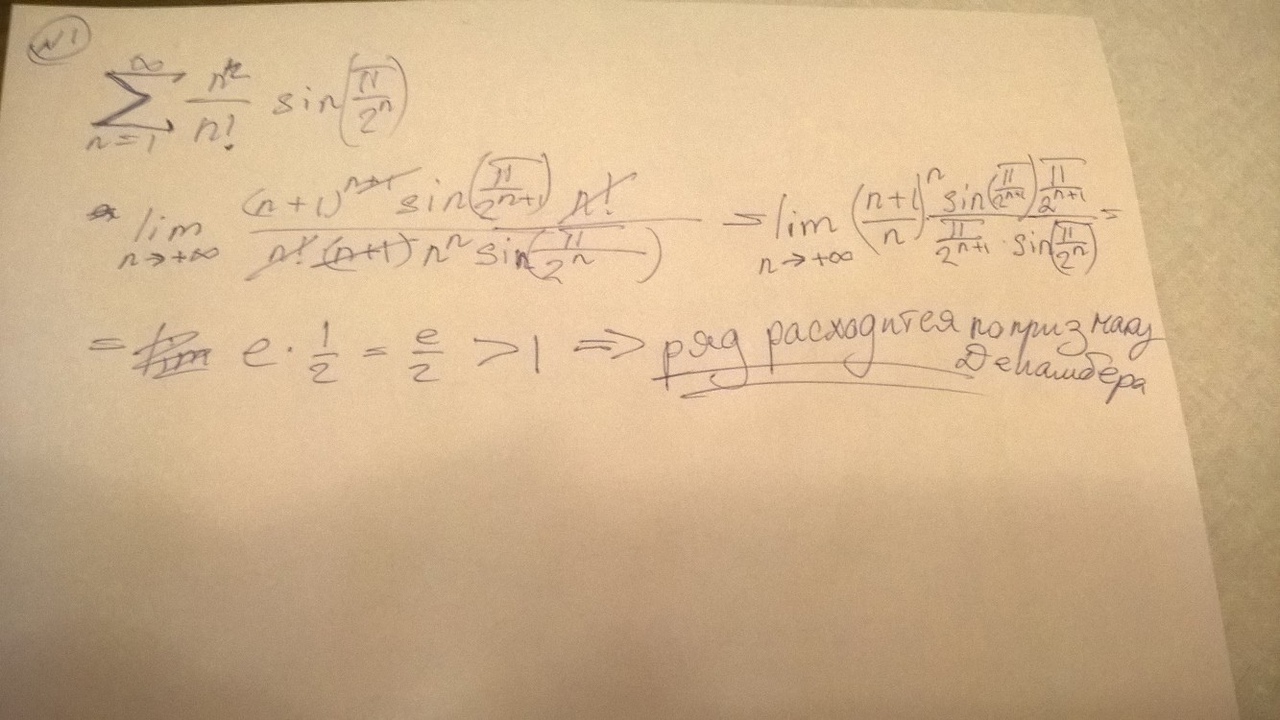 №1
∑_{n=1}^{∞} n^n/n! sin(π/2^n)
lim_{n→+∞} (n+1)^{n+1} sin(π/2^{n+1}) n! / n! (n+1) n^n sin(π/2^n) = lim_{n→+∞} ((n+1)/n)^n sin(π/2^{n+1}) π/2^{n+1} / π/2^{n+1} · sin(π/2^n) =
= lim e · 1/2 = e/2 > 1 => ряд расходится по признаку
Деламбера